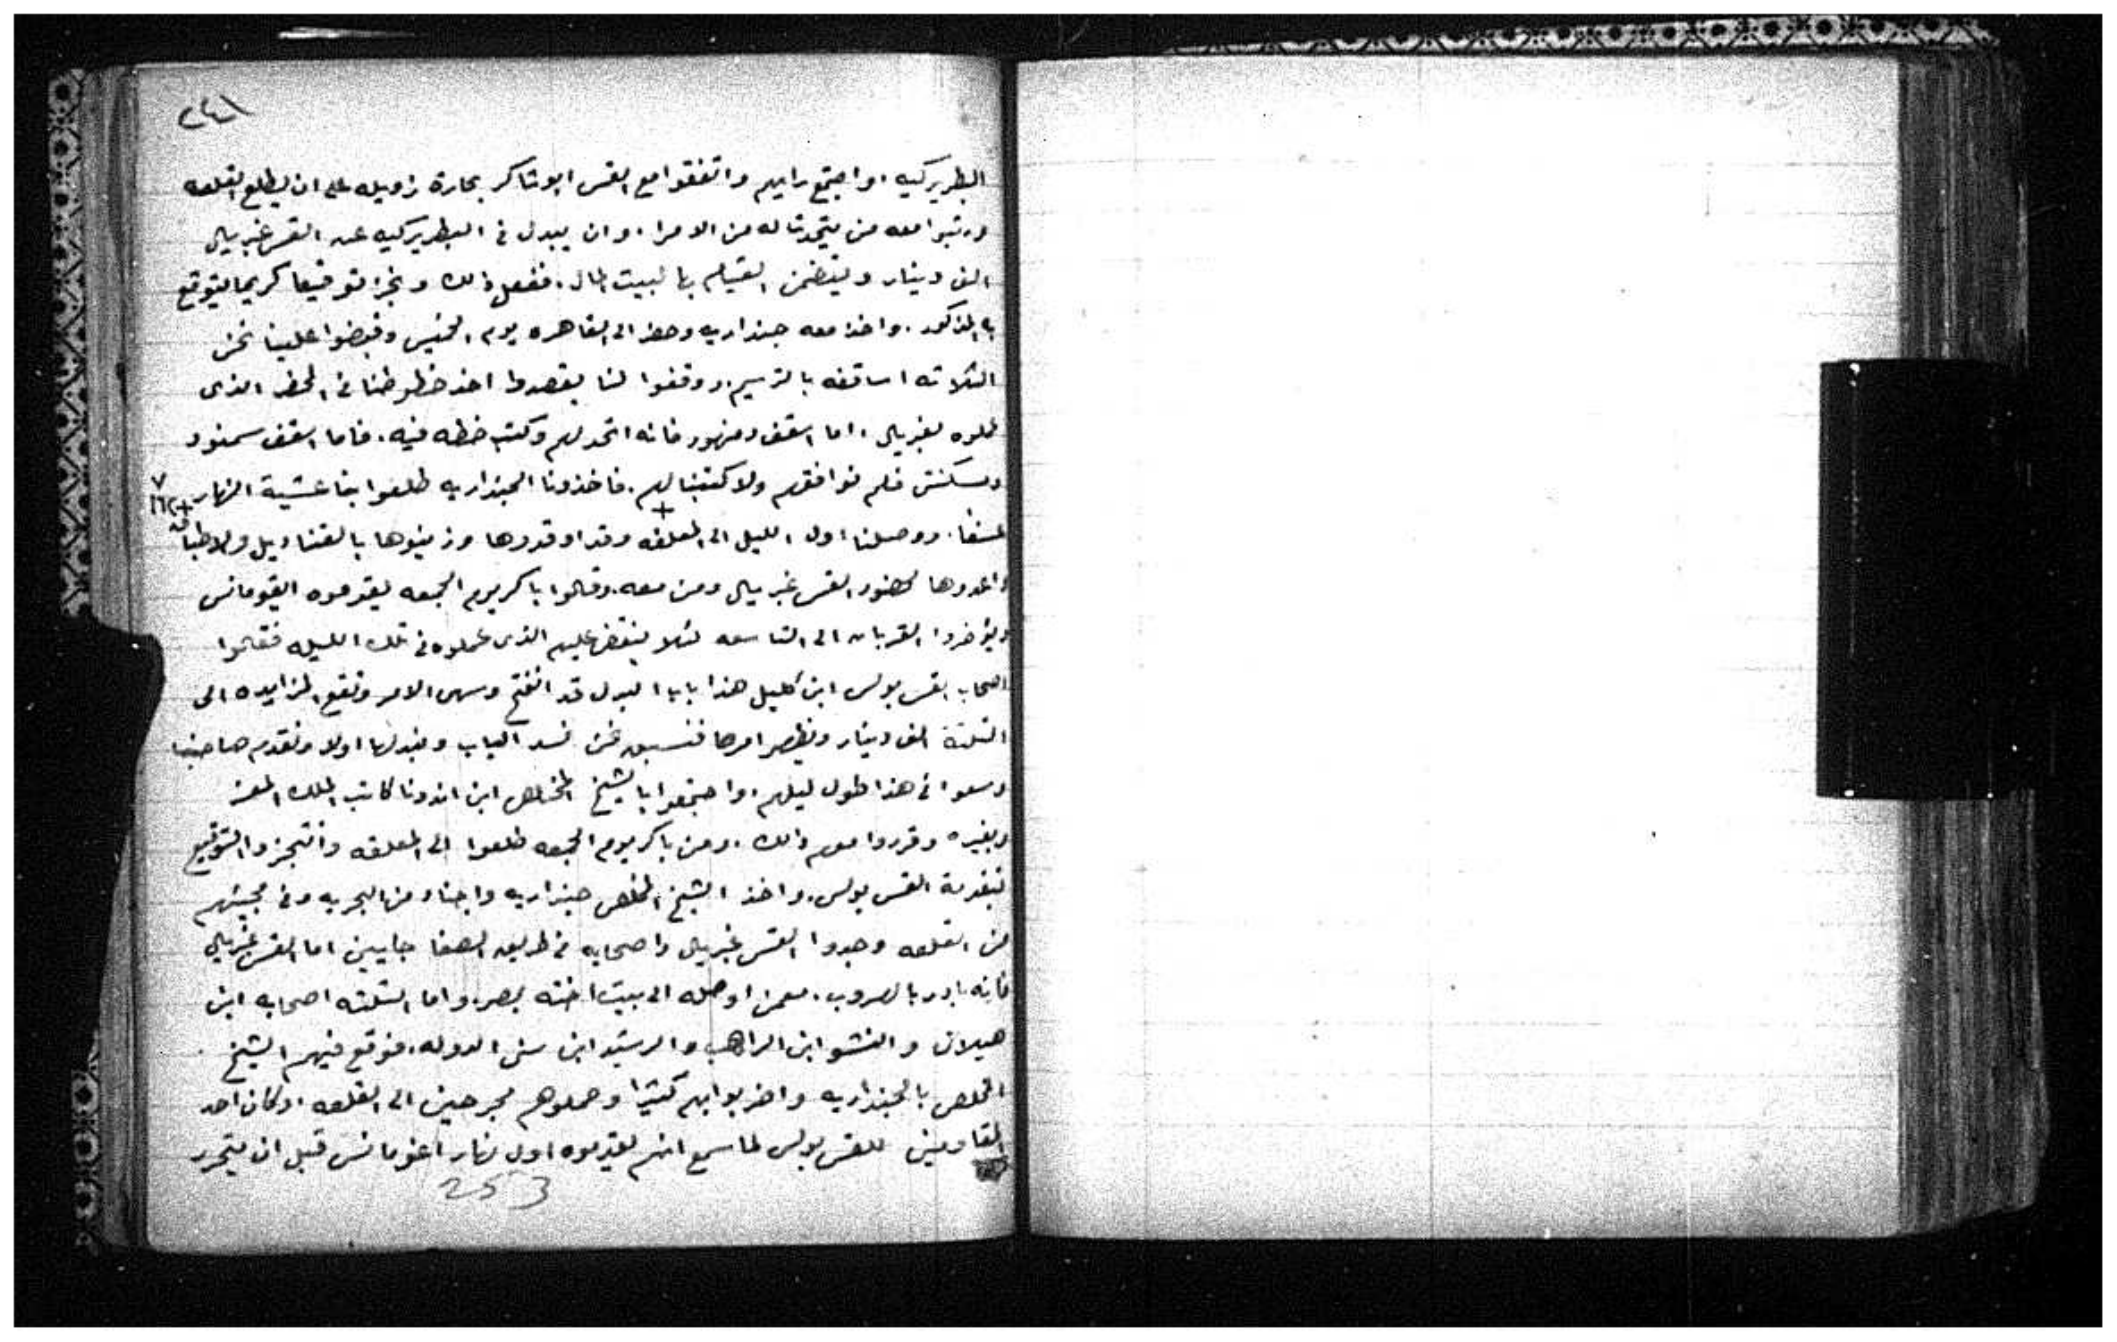 ٢٤١
البطريركيه، واجتمع رايهم واتفقوا مع القس ابو شاكر بحارة زويله على ان يطلع القلعه
ورتبوا معه من يتحدثا له من الامرا، وان يبدل في البطريركيه عن القس غبريال
الف دينار ويتضمن القيام بها لبيت المال. ففعل ذلك ونجز توقيعا كريما بتوقيع
بالمذكور. واخذ معه جنداريه وحضر الى القاهره يوم الخميس وقبضوا علينا نحن
الثلاثه اساقفه بالترسيم، ووقفوا لنا بقصدوا اخذ خطوطنا في المحضر الذى
عملوه لغبريال. اما اسقف دمنهور فانه اتحد لهم وكتب خطه فيه. فاما اسقف سمنود
فلم نوافقهم ولا كتبنا لهم. فاخذونا الجنداريه طلعوا بنا عشية النهار
ووصلنا اول الليل الى المعلقه وقد اوقدوها وزينوها بالقناديل ولاطباق
واعدوها لحضور القس غبريال ومن معه. وقالوا باكر يوم الجمعه يقدموه القومانس
ويؤخروا القربان الى التاسعه لئلا ينتقض عليهم الذى عملوه في تلك الليله فقالوا
اصحاب القس بولس ابن كليل هذا بابا البدل قد انفتح وسهى الامر وتقع المزايده الى
الثلثة الف دينار ويظهر امرها فنسبق نحن نسد الباب ونبدلها اولا ونقدم صاحبنا
وسعوا في هذا طول ليلهم. واجتمعوا بالشيخ المخلص ابن اندونا كاتب الملك المعز
وبغيره وقرروا معهم ذالك. ومن باكر يوم الجمعه طلعوا الى المعلقه وانتجزوا التوقيع
بتقدمة القس بولس، واخذ الشيخ المخلص جنداريه واجناد من البحريه وفي مجيئهم
من القلعه وجدوا القس غبريال واصحابه في طريق الصفا جايين اما القس غبريال
فانه بادر بالهروب. فمن اوصله الى بيت اخته بمصر، واما الثلثه اصحابه ابن
هيلان والنشو ابن الراهب والرشيد ابن سنى الدوله، فوقع فيهم الشيخ
المخلص بالجنداريه واضربوا بهم كثيرا وحملوهم مجرحين الى القلعه. وكان احد
المقاومين للقس بولس لما سمع انهم يقدموه اول نهار اغومانس قبل ان يتحرر
253